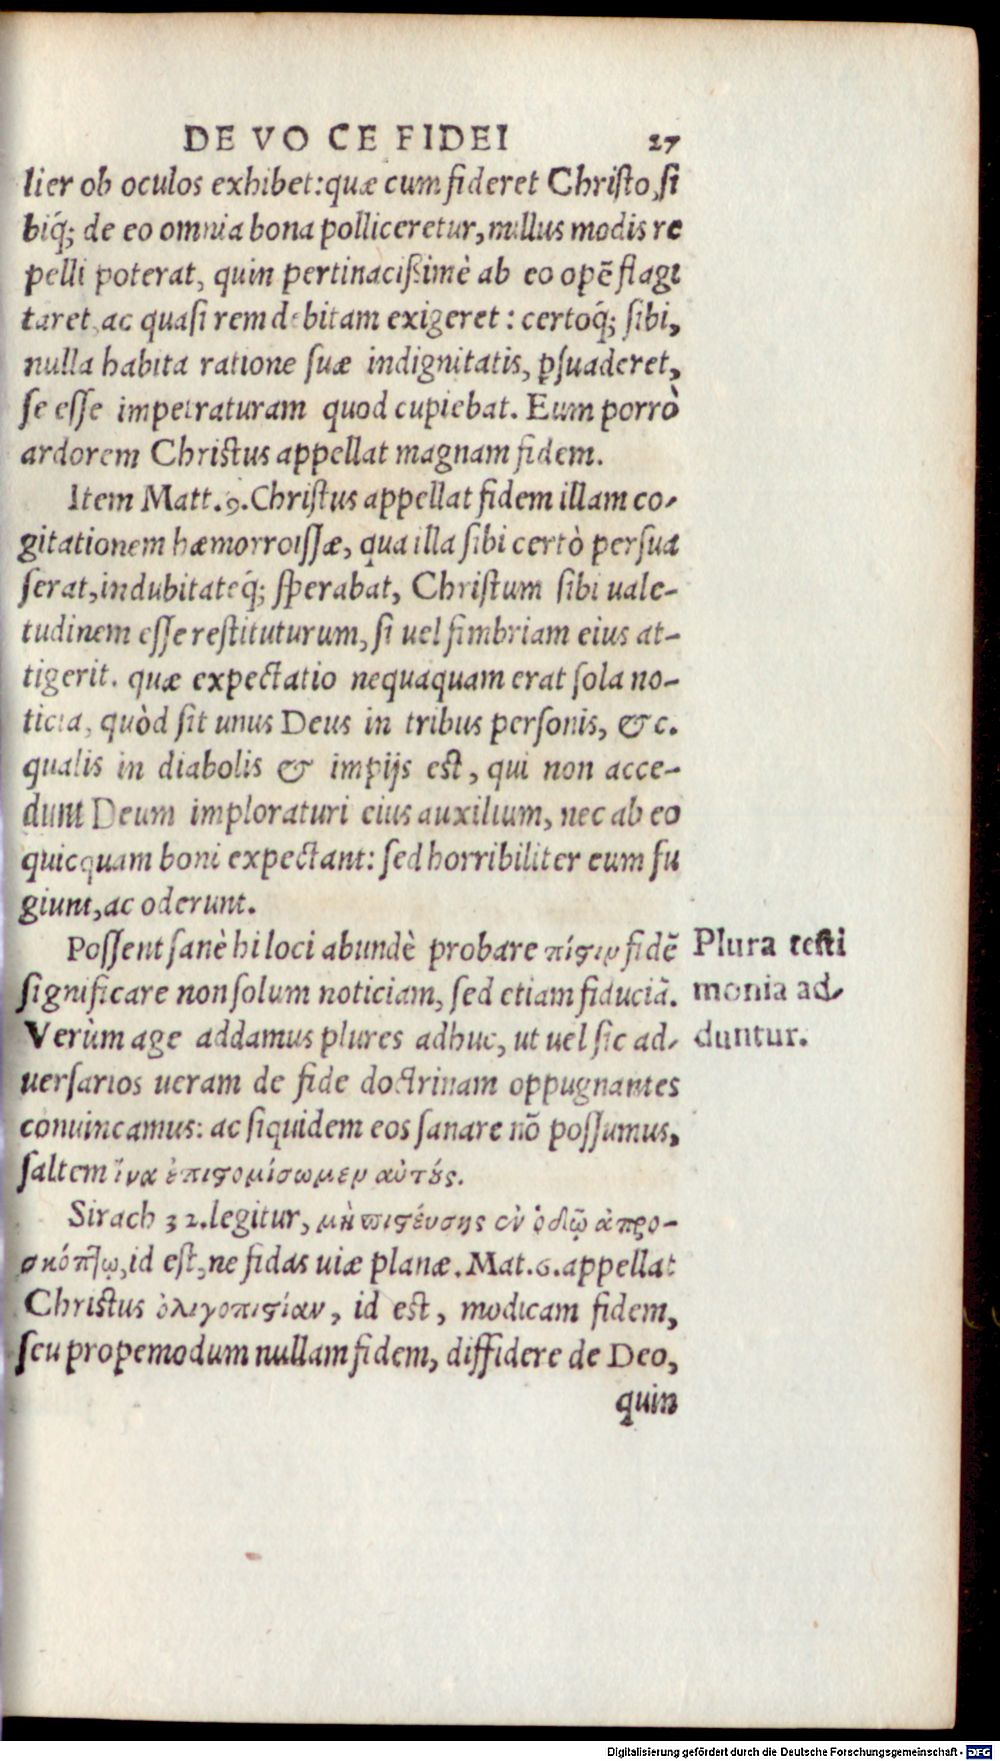 DE VOCE FIDEI 27
lier ob oculos exhibet: quæ cum fideret Christo, si
biq́; de eo omnia bona polliceretur, nullus modis re
pelli poterat, quin pertinacißimè ab eo opẽ flagi
taret, ac quasi rem debitam exigeret: certoq́; sibi,
nulla habita ratione suæ indignitatis, ꝑsuaderet,
se esse impetraturam quod cupiebat. Eum porrò
ardorem Christus appellat magnam fidem.
Item Matt. 9. Christus appellat fidem illam co-
gitationem hæmorroissæ, qua illa sibi certò persua
serat, indubitateq́; sperabat, Christum sibi uale-
tudinem esse restituturum, si uel fimbriam eius at-
tigerit. quæ expectatio nequaquam erat sola no-
ticia, quòd sit unus Deus in tribus personis, &c.
qualis in diabolis & impijs est, qui non acce-
dunt Deum imploraturi eius auxilium, nec ab eo
quicquam boni expectant: sed horribiliter eum fu
giunt, ac oderunt.
Possent sanè hi loci abundè probare πίϛιν fidẽ
significare non solum noticiam, sed etiam fiduciã.
Verùm age addamus plures adhuc, ut uel sic ad-
uersarios ueram de fide doctrinam oppugnantes
conuincamus: ac siquidem eos sanare nõ possumus,
saltem ἵνα ἐπιϛομίσωμεν αὐτούς.
Sirach 32. legitur, μὴ πιϛέυσης ἐν ὁδῷ ἀπρο-
σκόπτῳ, id est, ne fidas uiæ planæ. Mat. 6. appellat
Christus ὀλιγοπιϛίαν, id est, modicam fidem,
seu propemodum nullam fidem, diffidere de Deo,
quin
Plura testi
monia ad-
duntur.
Digitalisierung gefördert durch die Deutsche Forschungsgemeinschaft - DFG